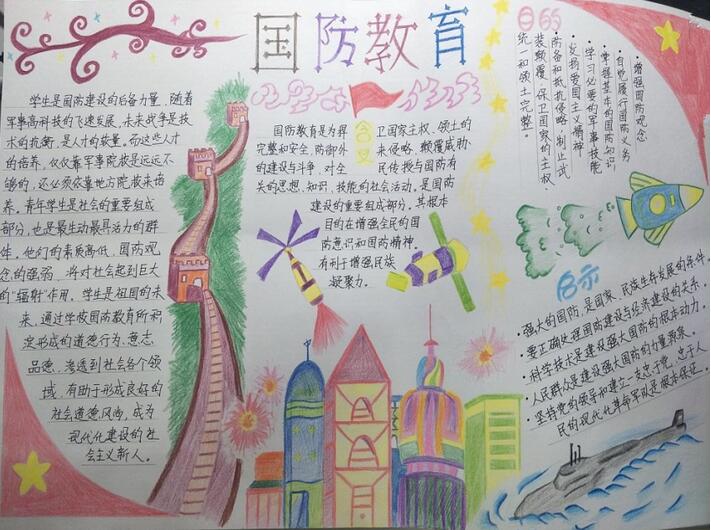 国防教育
学生是国防建设的后备力量，随着
军事高科技的飞速发展，未来战争是技
术的抗衡，是人才的较量。而这些人才
的培养，仅仅靠军事院校是远远不
够的，还必须依靠地方院校来培
养。青年学生是社会的重要组成
部分，也是最生动最具活力的群
体，他们的素质高低，国防观
念的强弱，将对社会起到巨大
的"辐射"作用，学生是祖国的未
来，通过学校国防教育所积
淀形成的道德行为、意志、
品德，渗透到社会各个领
域，有助于形成良好的
社会道德风尚，成为
现代化建设的社
会主义新人。
含义
国防教育是为捍卫国家主权、领土的
完整和安全，防御外来侵略、颠覆威胁，
的建设与斗争，对全民传授与国防有
关的思想、知识、技能的社会活动。是国防
建设的重要组成部分，其根本
目的在增强全民的国
防意识和国防精神。
有利于增强民族
凝聚力。
目的
·增强国防观念
·自觉履行国防义务
·掌握基本的国防知识
·学习必要的军事技能
·发扬爱国主义精神
防备和抵抗侵略，制止武
装颠覆，保卫国家的主权、
统一和领土完整。
启示
·强大的国防，是国家、民族生存发展的条件。
·要正确处理国防建设与经济建设的关系。
·科学技术是建设强大国防的根本动力。
·人民群众是建设强大国防的力量源泉。
·坚持党的领导和建立一支忠于党、忠于人
民的现代化革命军队是根本保证。